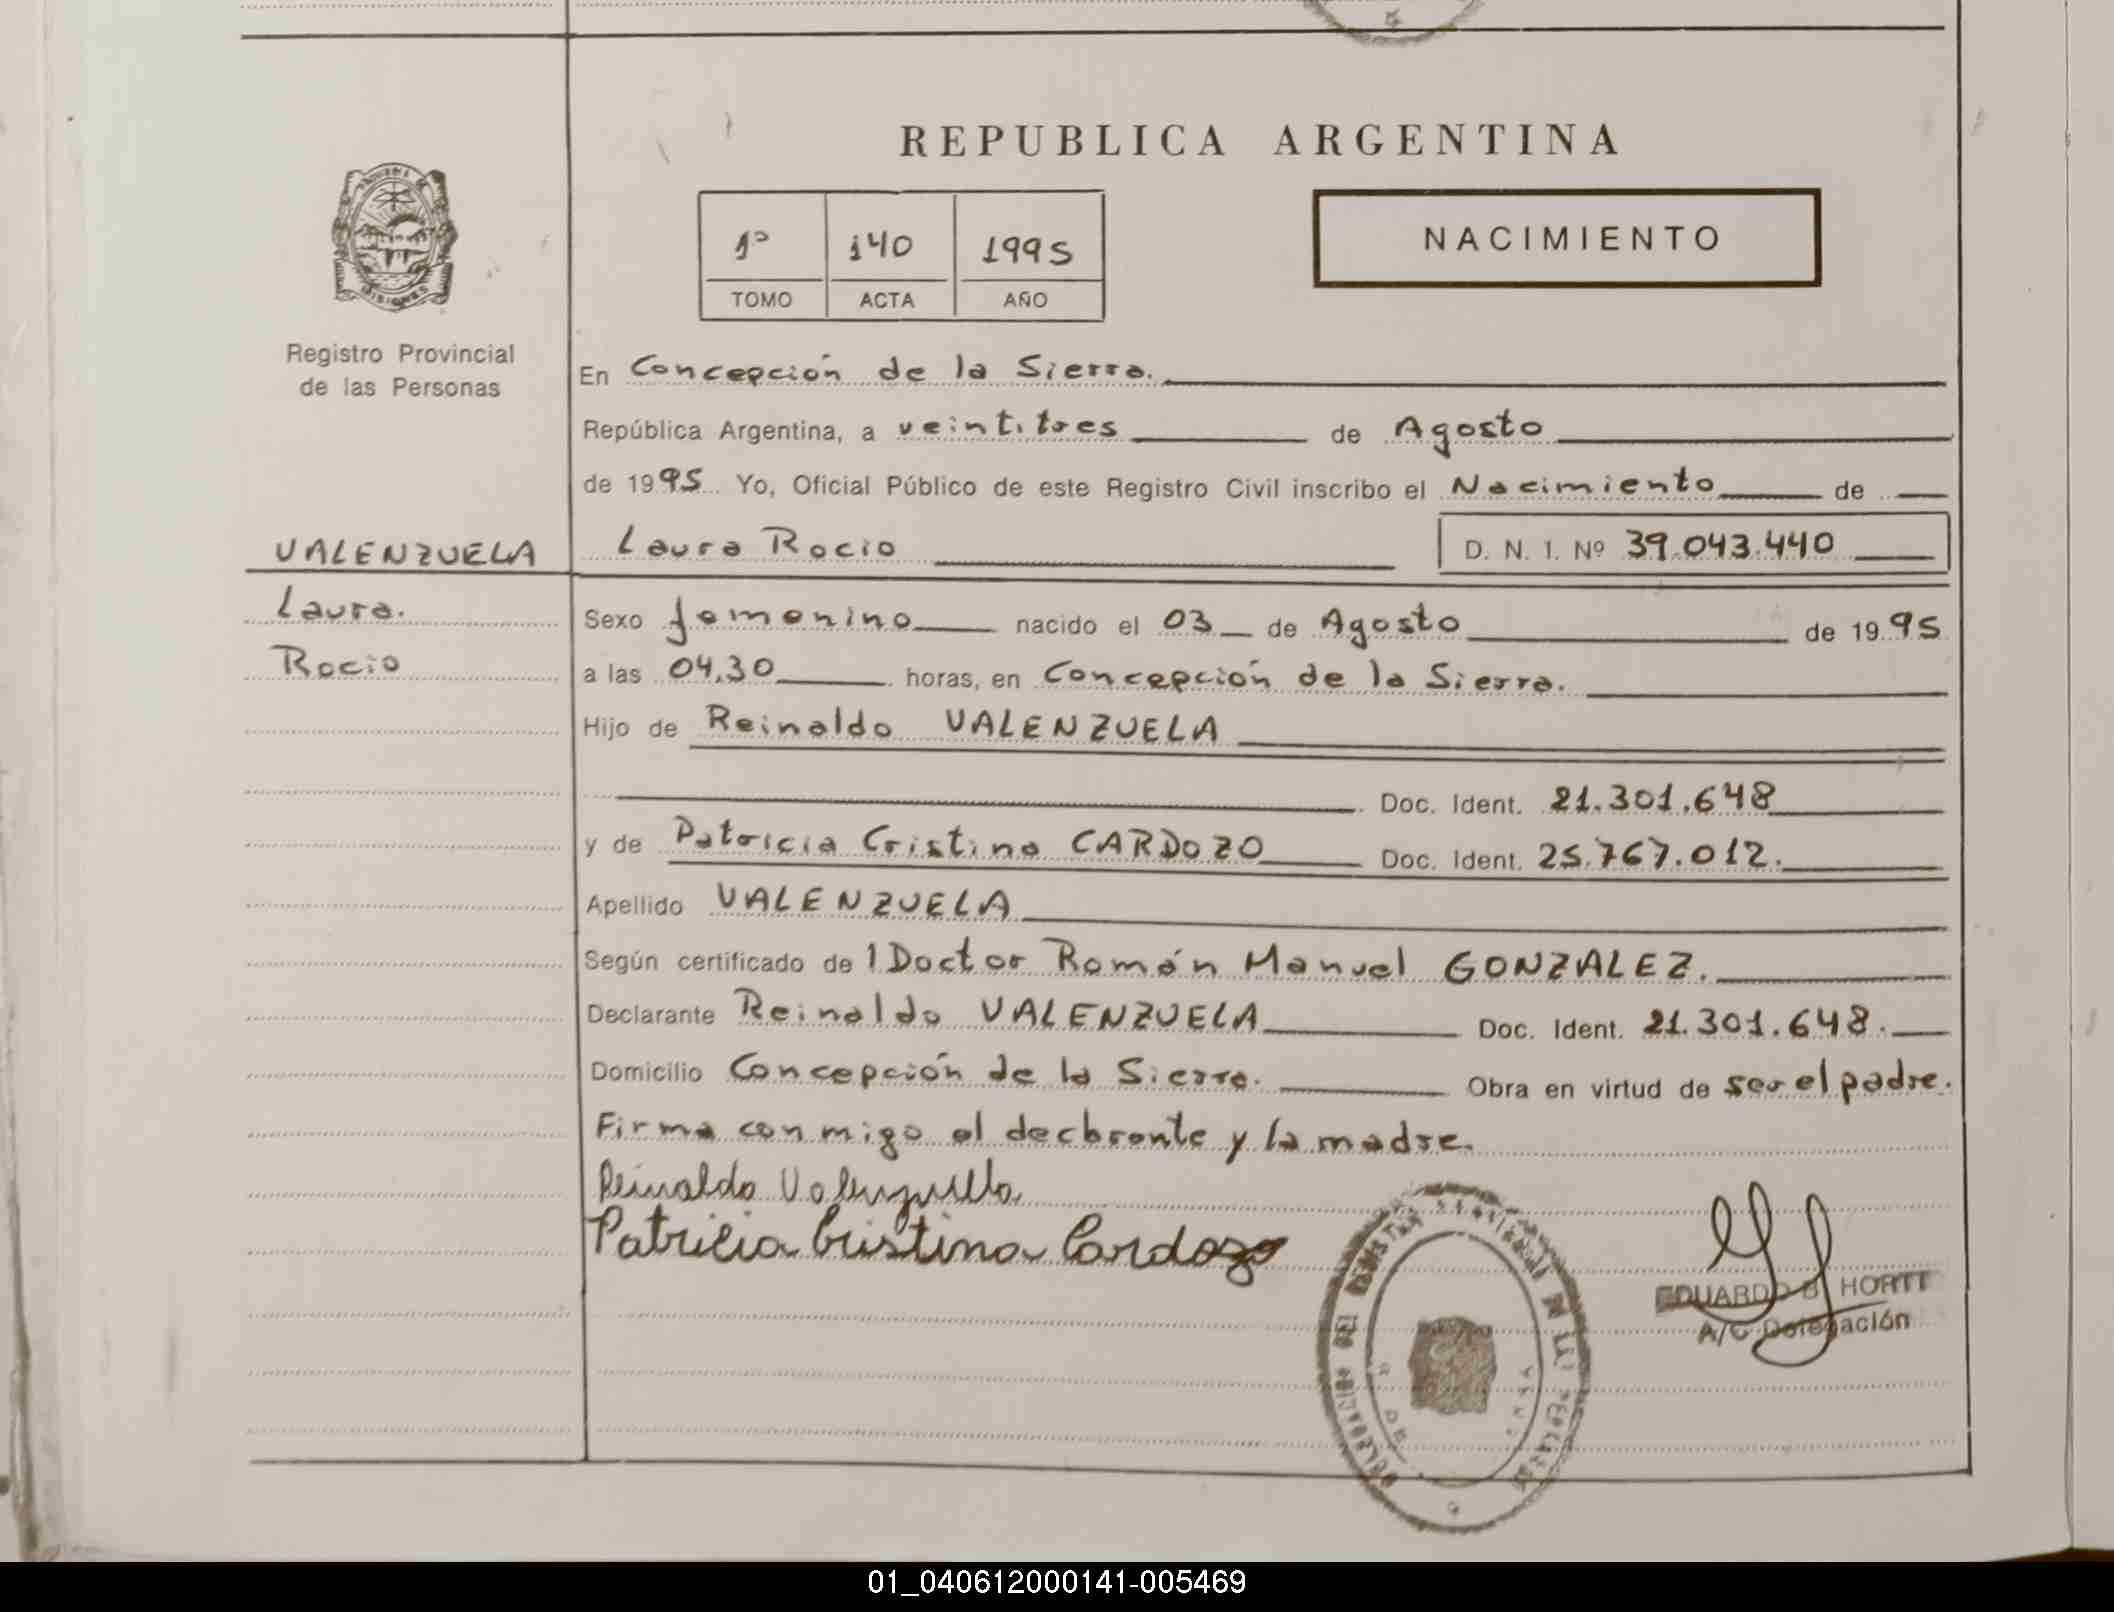 REPUBLICA ARGENTINA
1º 140 1995
TOMO ACTA AÑO
NACIMIENTO
MISIONES
Registro Provincial
de las Personas
En Concepción de la Sierra.
República Argentina, a veintitres de Agosto
de 1995 Yo, Oficial Público de este Registro Civil inscribo el Nacimiento de
VALENZUELA Laura Rocio D. N. I. Nº 39.043.440
Laura.
Rocio
Sexo femenino nacido el 03 de Agosto de 1995
a las 04,30 horas, en Concepción de la Sierra.
Hijo de Reinaldo VALENZUELA
Doc. Ident. 21.301.648
y de Patricia Cristina CARDOZO Doc. Ident. 25.767.012.
Apellido VALENZUELA
Según certificado de l Doctor Román Manuel GONZALEZ.
Declarante Reinaldo VALENZUELA Doc. Ident. 21.301.648.
Domicilio Concepción de la Sierra. Obra en virtud de ser el padre.
Firma con migo el declarante y la madre.
Reinaldo Valenzuela
Patricia Cristina Cardozo
EDUARDO B. HORTT
A/C Delegación
01_040612000141-005469